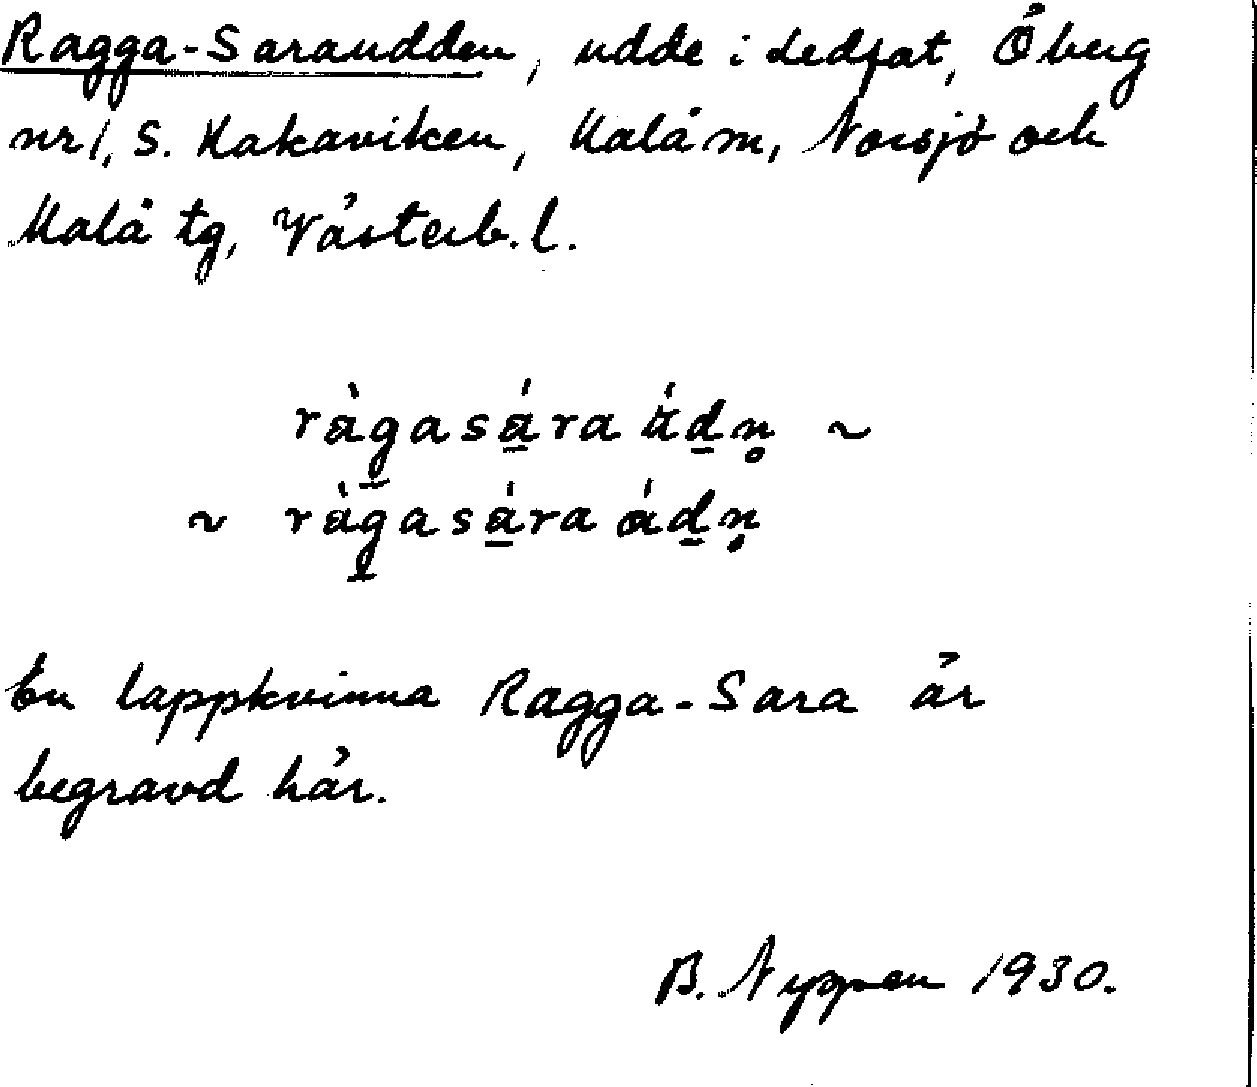 Ragga-Saraudden, udde i Ledfat, Öberg
nr 1, S. Kakaviken, Malå sn, Norsjö och
Malå tg, Västerb. l.
ràg̱asá̱ra áḏn̥ ~
~ ràg̱asá̱ra áḏṇ
En lappkvinna Ragga-Sara är
begravd här.
B. Nygren 1930.